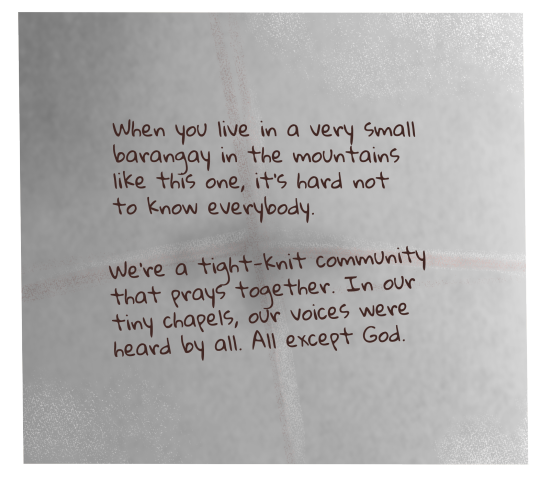 When you live in a very small
barangay in the mountains
like this one, it's hard not
to know everybody.
We're a tight-knit community
that prays together. In our
tiny chapels, our voices were
heard by all. All except God.